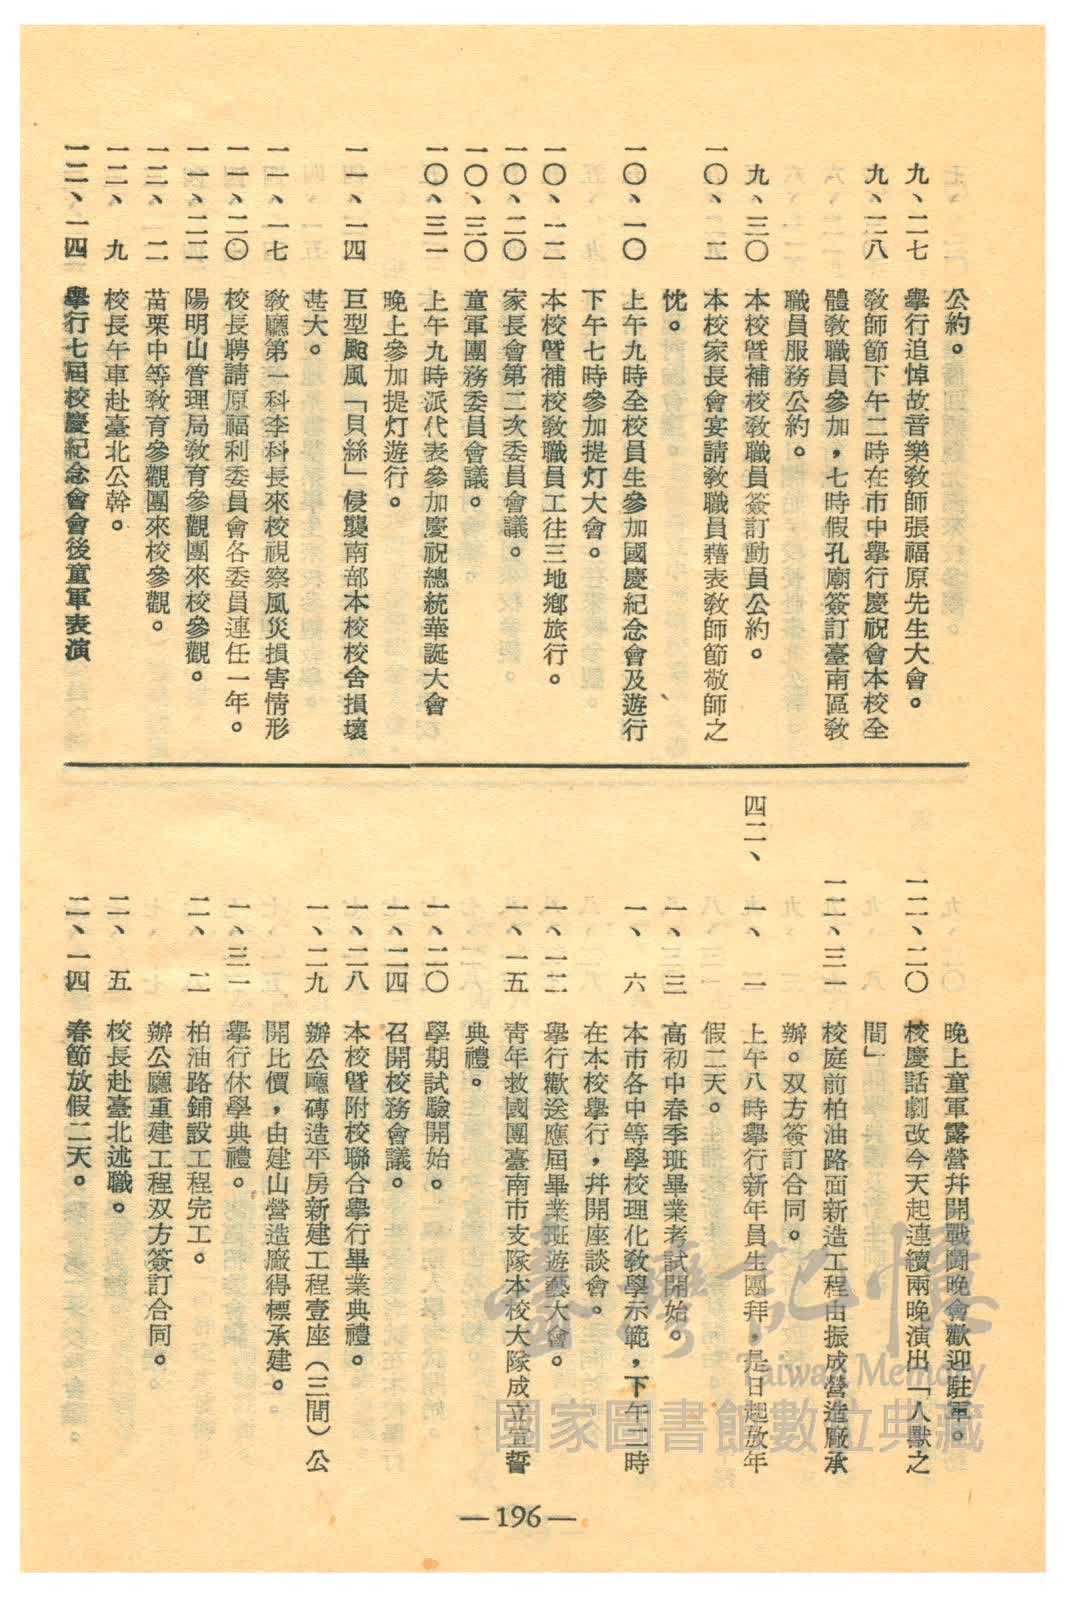 公約。
九、二七　舉行追悼故音樂教師張福原先生大會。
九、二八　教師節下午二時在市中舉行慶祝會本校全
體教職員參加，七時假孔廟簽訂臺南區教
職員服務公約。
九、三〇　本校暨補校教職員簽訂動員公約。
一〇、二　本校家長會宴請教職員藉表教師節敬師之
忱。
一〇、一〇　上午九時全校員生參加國慶紀念會及遊行
下午七時參加提灯大會。
一〇、一二　本校暨補校教職員工往三地鄉旅行。
一〇、二〇　家長會第二次委員會議。
一〇、三〇　童軍團務委員會議。
一〇、三一　上午九時派代表參加慶祝總統華誕大會
晚上參加提灯遊行。
一一、一四　巨型颱風「貝絲」侵襲南部本校校舍損壞
甚大。
一一、一七　教廳第一科李科長來校視察風災損害情形
一一、二〇　校長聘請原福利委員會各委員連任一年。
一一、二二　陽明山管理局教育參觀團來校參觀。
一二、二　苗栗中等教育參觀團來校參觀。
一二、九　校長午車赴臺北公幹。
一二、一四　舉行七屆校慶紀念會會後童軍表演
晚上童軍露營幷開戰鬪晚會歡迎駐軍。
一二、二〇　校慶話劇改今天起連續兩晚演出「人獸之
間」
一二、三一　校庭前柏油路面新造工程由振成營造廠承
辦。双方簽訂合同。
四二、一、一　上午八時舉行新年員生團拜，是日起放年
假二天。
一、三　高初中春季班畢業考試開始。
一、六　本市各中等學校理化教學示範，下午二時
在本校學行，幷開座談會。
一、一二　舉行歡送應屆畢業班遊藝大會。
一、一五　靑年救國團臺南市支隊本校大隊成立宣誓
典禮。
一、二〇　學期試驗開始。
一、二四　召開校務會議。
一、二八　本校暨附校聯合學行畢業典禮。
一、二九　辦公廳磚造平房新建工程壹座（三間）公
開比價，由建山營造廠得標承建。
一、三一　舉行休學典禮。
二、二　柏油路鋪設工程完工。
辦公廳重建工程双方簽訂合同。
二、五　校長赴臺北述職。
二、一四　春節放假二天。
—196—
臺灣記憶
Taiwan Memory
國家圖書館數位典藏